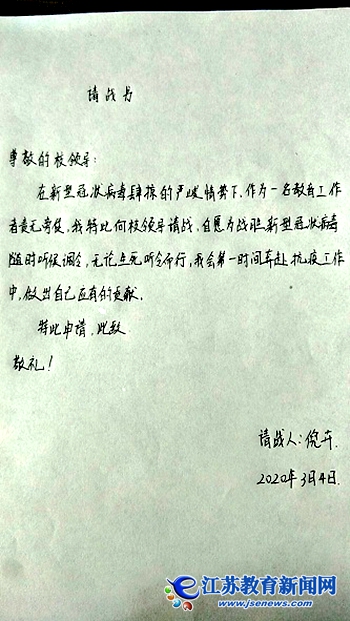 请战书
尊敬的校领导:
在新型冠状病毒肆掠的严峻情势下,作为一名教育工作
者责无旁贷,我特此向校领导请战,自愿为战胜新型冠状病毒
随时听候调令,无论生死听令而行,我会第一时间奔赴抗疫工作
中,做出自己应有的贡献。
特此申请,此致
敬礼!
请战人:倪卉
2020年3月4日
江苏教育新闻网
www.jsenews.com